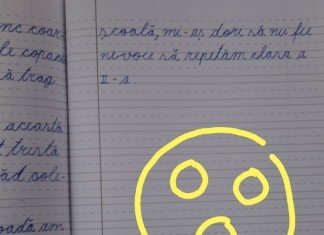 nc coar-
le copaci
ă trag
această
t tristă
ăd cole-
oadă am
școală, mi-aș dori să nu fie
nevoie să repetăm clasa a
II-a